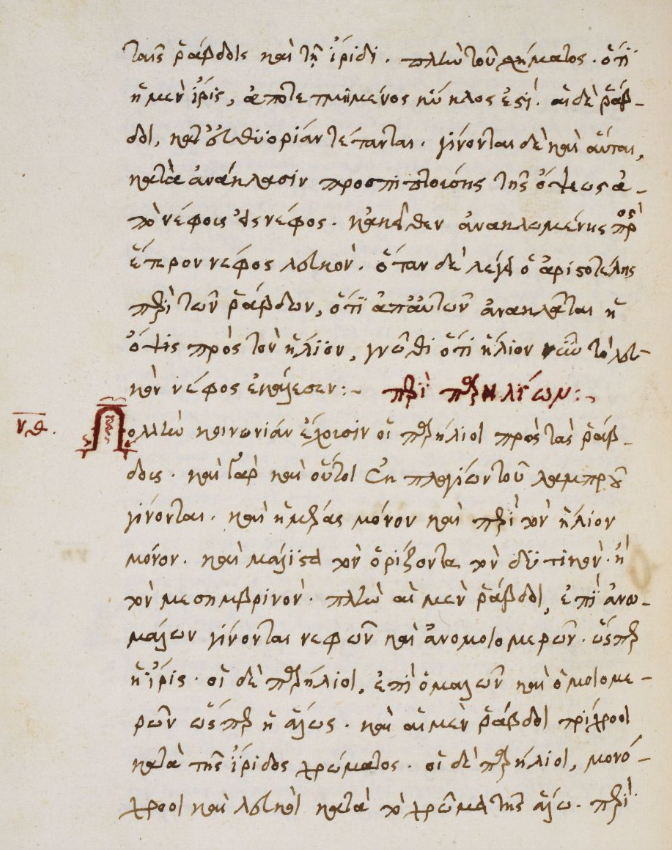 ταις ῥάβδοις καὶ τῇ ἴριδι. πλὴν τοῦ σχήματος. ὅτι
ἡ μὲν ἶρις, ἀποτετμημένος κύκλος ἐστί. αἱ δὲ ῥάβ-
δοι, κατ' εὐθυωρίαν τέτανται. γίνονται δὲ καὶ αὗται,
κατὰ ἀνάκλασιν προσπιπτούσης τῆς ὄψεως ἀ-
πὸ νέφους εἰς νέφος. κἀκεῖθεν ἀνακλωμένης πρὸς
ἕτερον νέφος λευκόν. ὅταν δὲ λέγῃ ὁ ἀριστοτέλης
περὶ τῶν ῥάβδων, ὅτι ἀπ' αὐτῶν ἀνακλᾶται ἡ
ὄψις πρὸς τὸν ἥλιον, γνῶθι ὅτι ἥλιον νῦν τὸ λευ-
κὸν νέφος ἐκάλεσεν:- περὶ παρηλίων:-
νθ. Πολλὴν κοινωνίαν ἔχουσιν οἱ παρήλιοι πρὸς τὰς ῥάβ-
δους. καὶ γὰρ καὶ οὗτοι ἐκ πλαγίων τοῦ λαμπροῦ
γίνονται. καὶ ἡμέρας μόνον καὶ περὶ τὸν ἥλιον
μόνον. καὶ μάλιστα τὸν ὁρίζοντα τὸν δυτικόν. ἢ
τὸν μεσημβρινόν. πλὴν αἱ μὲν ῥάβδοι, ἐπὶ ἀνω-
μάλων γίνονται νεφῶν καὶ ἀνομοιομερῶν. ὥσπερ
ἡ ἶρις. οἱ δὲ παρήλιοι, ἐπὶ ὁμαλῶν καὶ ὁμοιομε-
ρῶν ὥσπερ ἡ ἅλως. καὶ αἱ μὲν ῥάβδοι τρίχροοι
κατὰ τῆς ἴριδος χρώματος. οἱ δὲ παρήλιοι, μονό-
χροοι καὶ λευκοὶ κατὰ τὸ χρῶμα τῆς ἅλω. περὶ